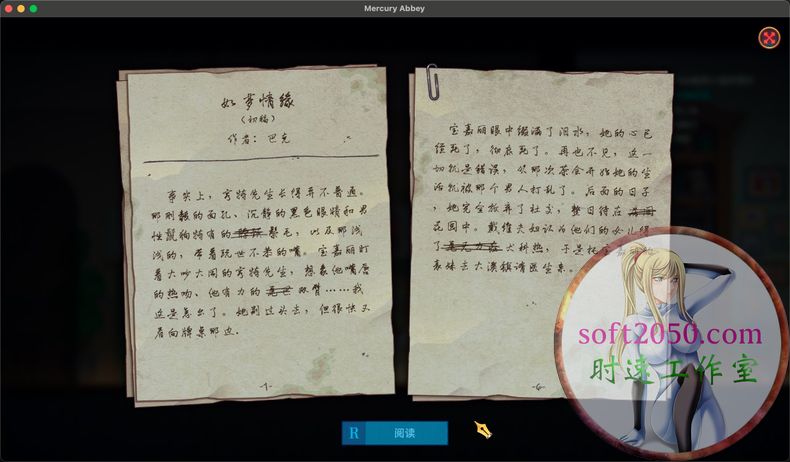 Mercury Abbey
如梦情缘
（初稿）
作者：巴克
事实上，亨特先生长得并不普通。
那刚毅的面孔、沉静的黑色眼睛和男
性鬣狗特有的鬃毛，以及那浅
浅的，带着玩世不恭的嘴。宝嘉丽盯
着大吵大闹的亨特先生，想象他嘴唇
的热吻、他有力的双臂……我
这是怎么了。她别过头去，但很快又
看向牌桌那边。
-1-
宝嘉丽眼中缀满了泪水，她的心已
经死了，彻底死了。再也不见，这一
切就是错误，从那次茶会开始她的生
活就被那个男人打乱了。后面的日子
，她完全抛弃了社交，整日待在
花园中。戴维夫妇认为他们的女儿得
了犬科热，于是托宝嘉丽的
表妹去大溪镇请医生来。
-6-
R 阅读
soft2050.com
时速工作室